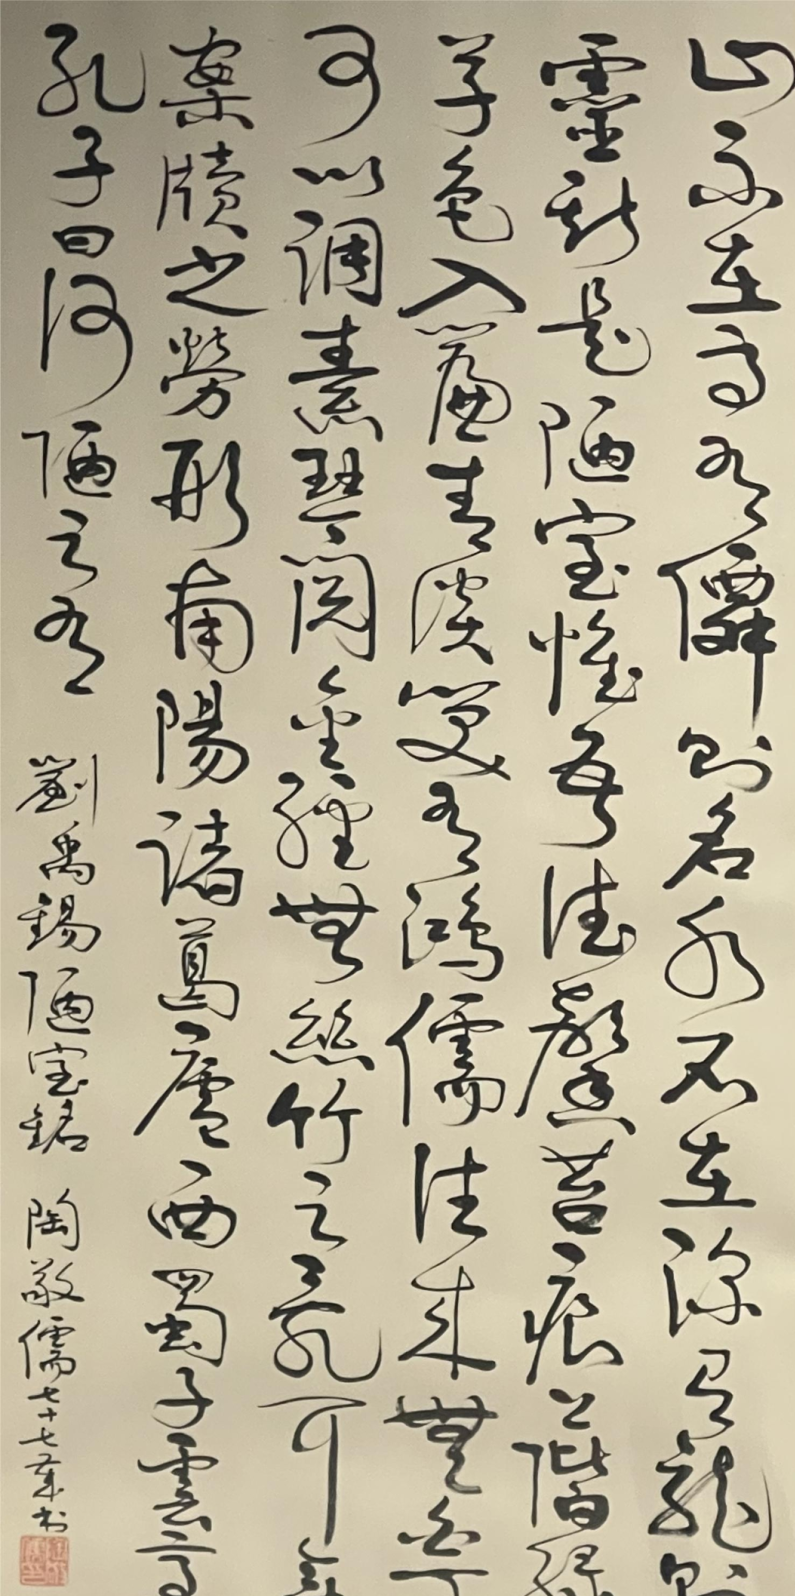 山不在高有僊則名水不在深有龍則
靈斯是陋室惟吾德馨苔痕上階綠
草色入簾青談笑有鴻儒往來無白丁
可以調素琴閱金經無絲竹之亂耳無
案牘之勞形南陽諸葛廬西蜀子雲亭
孔子曰何陋之有 劉禹錫陋室銘 陶敬儒七十七书